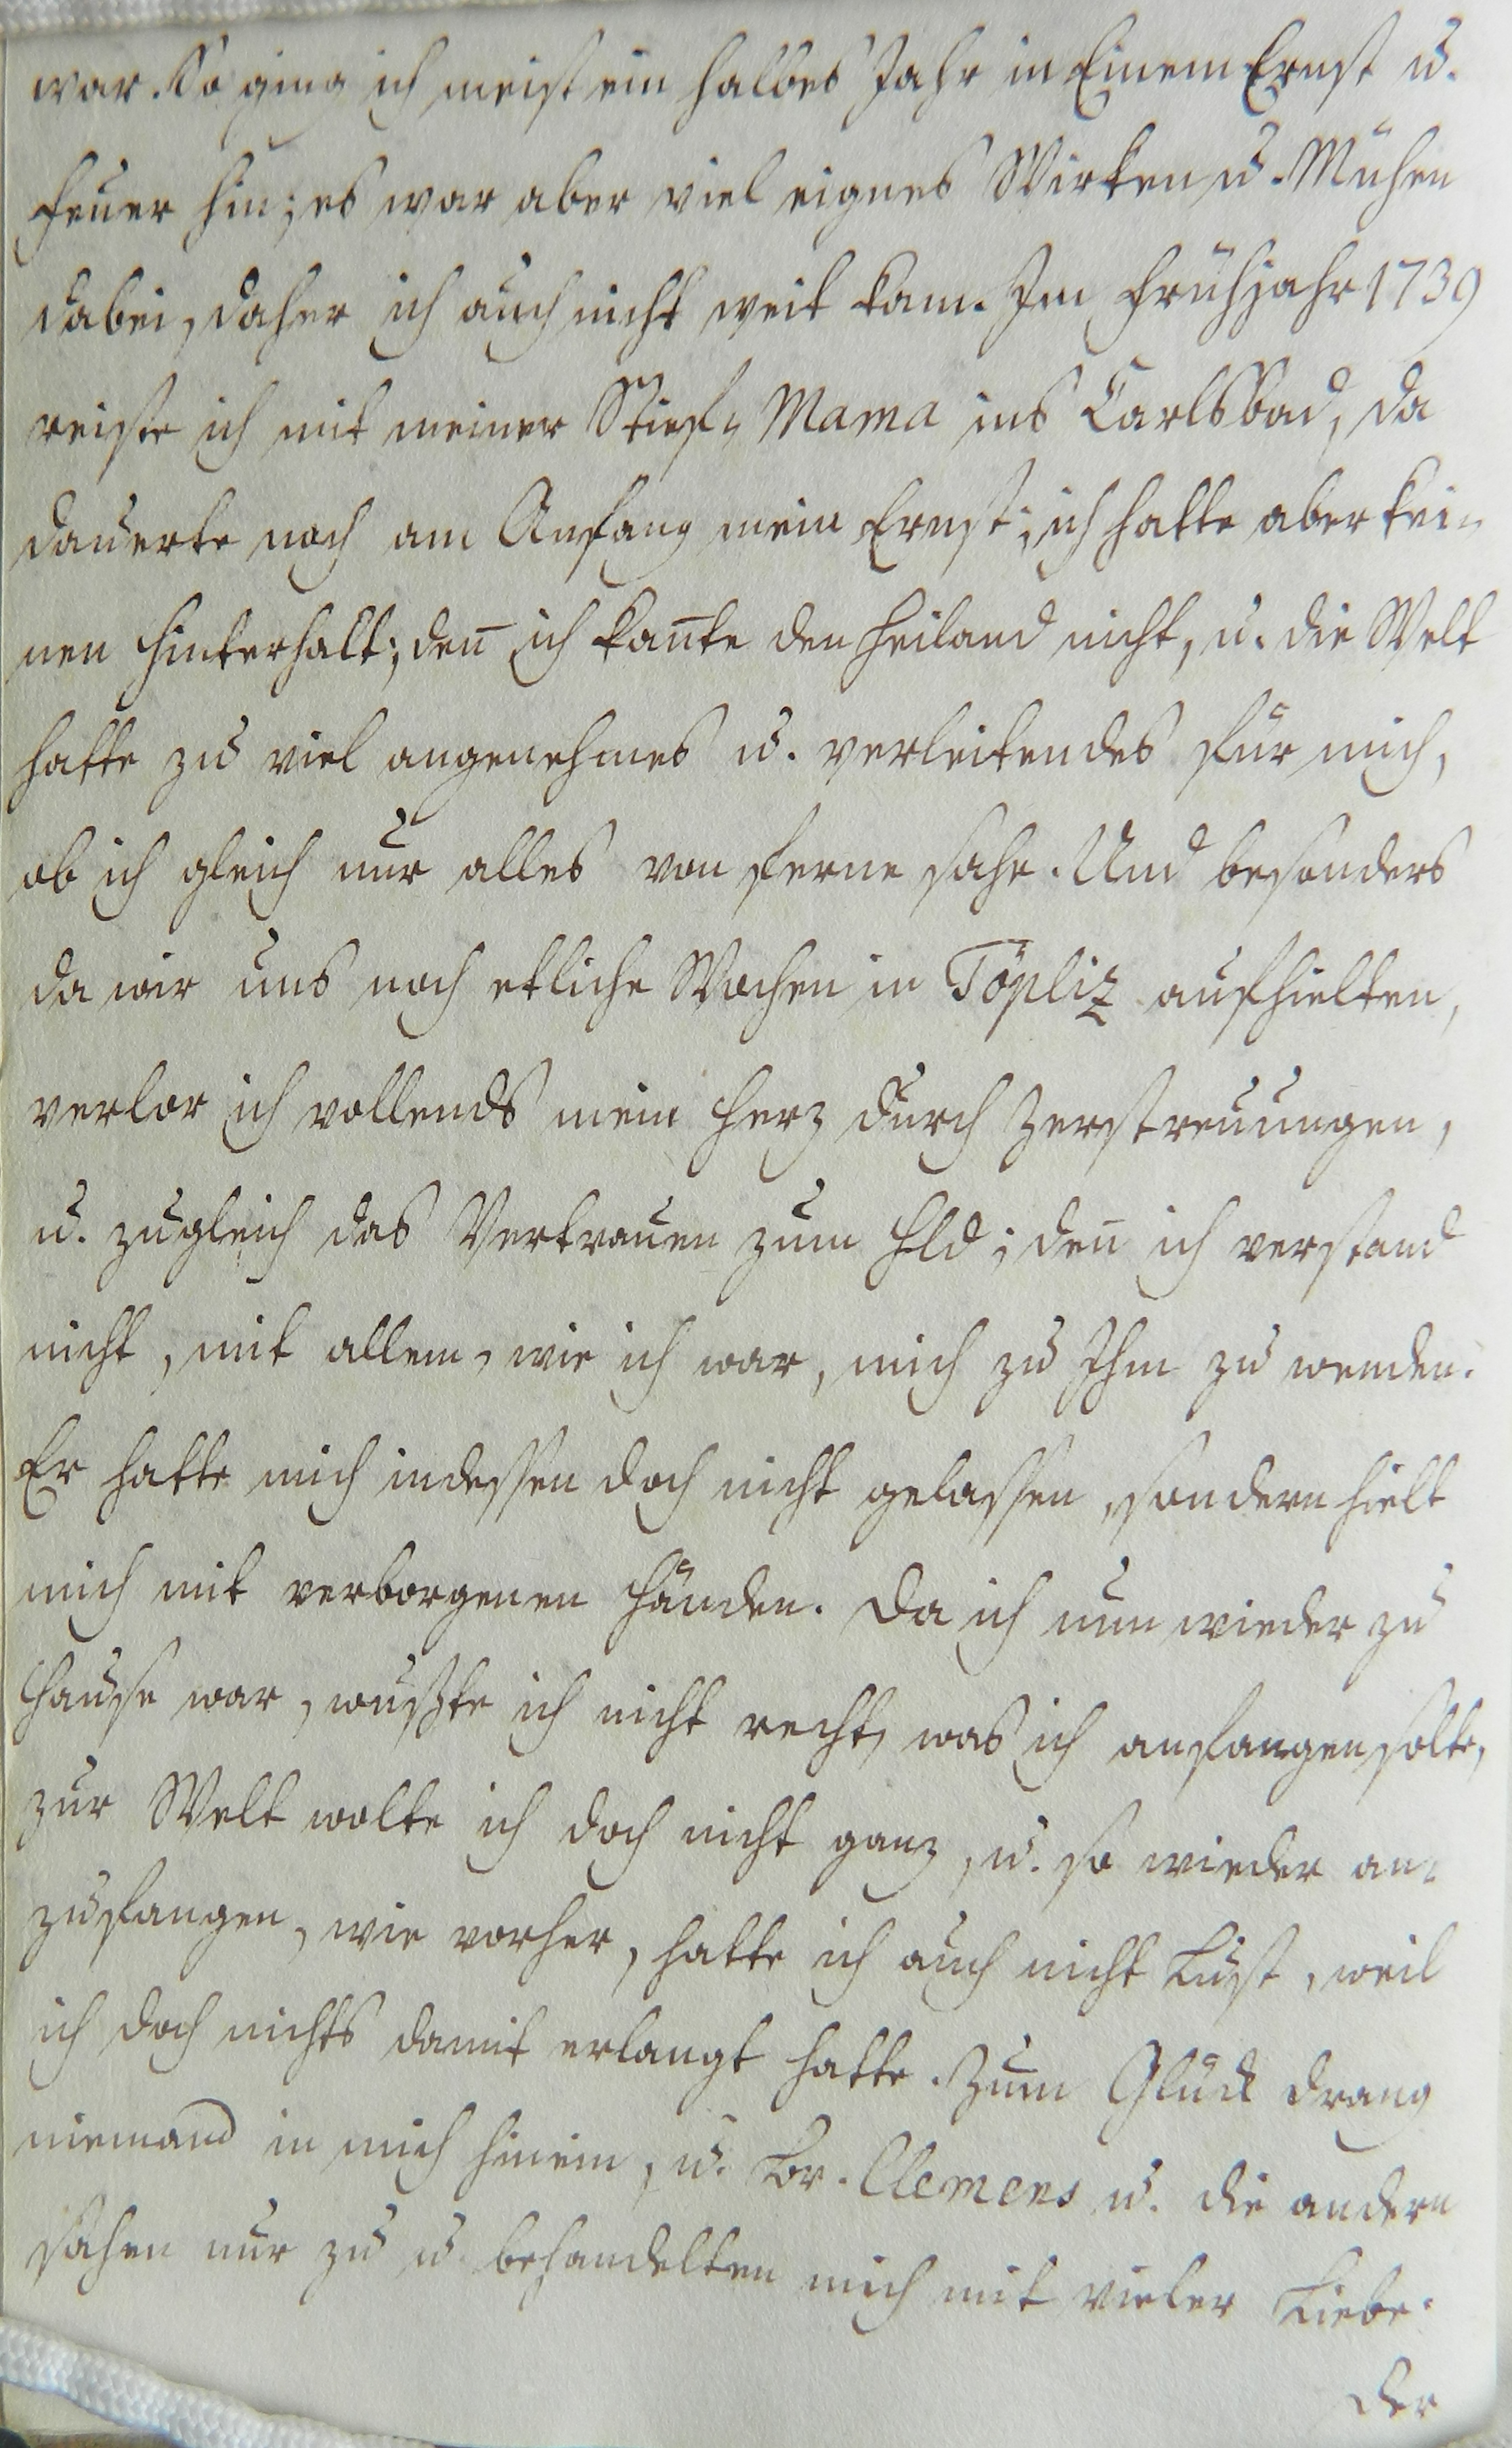 war. So ging ich meist ein halbes Jahr in Einem Ernst u.
Feuer hin; es war aber viel eignes Wirken u. Mühen
dabei, daher ich auch nicht weit kam. Im Frühjahr 1739
reiste ich mit meiner Stief- Mama ins Carlsbad, da
dauerte noch am Anfang mein Ernst; ich hatte aber kei-
nen Hinterhalt; den̄ ich kan̄te den Heiland nicht, u. die Welt
hatte zu viel angenehmes u. verleitendes für mich,
ob ich gleich nur alles von ferne sahe. Und besonders
da wir uns noch etliche Wochen in Töpliz aufhielten,
verlor ich vollends mein Herz durch Zerstreuungen,
u. zugleich das Vertrauen zum Hld; den̄ ich verstand
nicht, mit allem, wie ich war, mich zu Ihm zu wenden.
Er hatte mich indessen doch nicht gelassen, sondern hielt
mich mit verborgenen Händen. Da ich nun wieder zu
Hause war, wußte ich nicht recht, was ich anfangen solte,
zur Welt wolte ich doch nicht ganz, u. so wieder an-
zufangen, wie vorher, hatte ich auch nicht Lust, weil
ich doch nichts damit erlangt hatte. Zum Glück drang
niemand in mich hinein, u. Br. Clemens u. die andern
sahen nur zu u. behandelten mich mit vieler Liebe.
Der